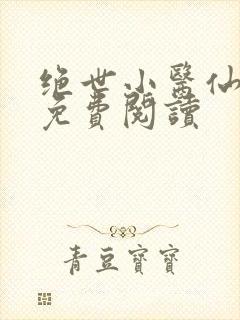 绝世小醫仙
免費閱讀
青豆寶寶